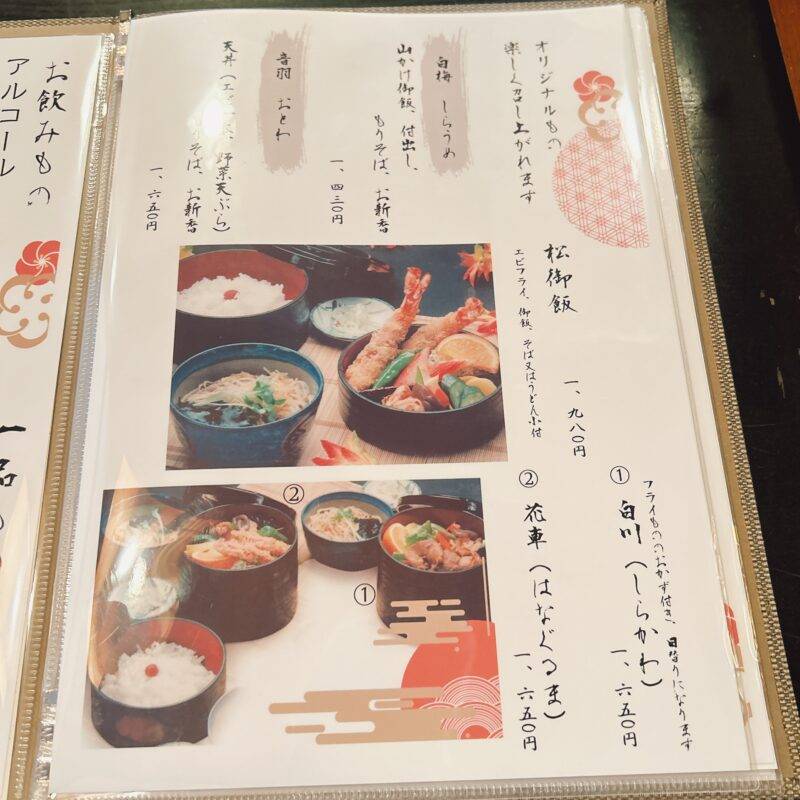 オリジナルもの
楽しく召し上がれます
白梅 しらうめ
山かけ御飯、付出し、
もりそば、お新香
一、四三〇円
音羽 おとわ
天丼(エビ、野菜天ぷら)
そば、お新香
一、六五〇円
松御飯
エビフライ、御飯、そば又はうどん小付
一、九八〇円
フライもののおかず付き、日替りになります
① 白川(しらかわ)
一、六五〇円
② 花車(はなぐるま)
一、六五〇円
②
①
お飲みもの
アルコール
一品